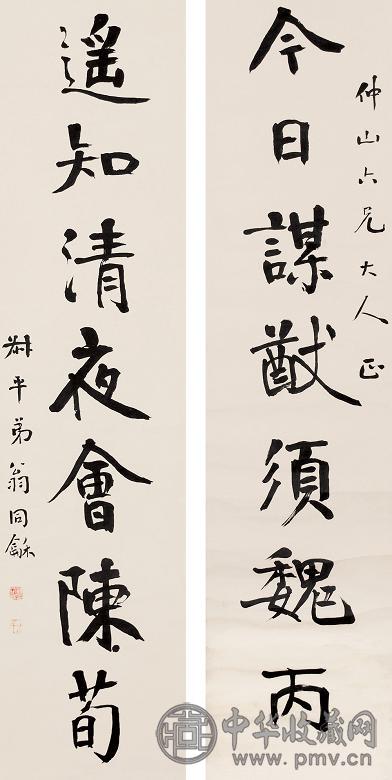 仲山六兄大人正
今日謀猷須魏丙
遥知清夜會陳荀
叔平弟翁同龢
中华收藏网
www.pmv.cn